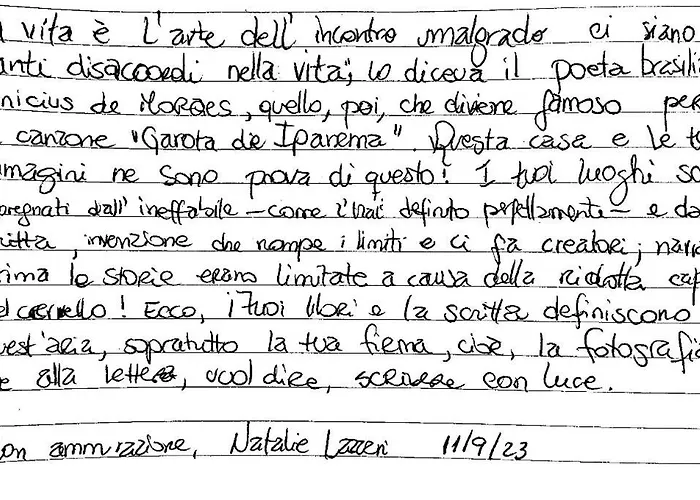 vita è l'arte dell'incontro malgrado ci siano
anti disaccordi nella vita", lo diceva il poeta brasili
nicius de Moraes, quello, poi, che diviene famoso per
canzone "Garota de Ipanema". Questa casa e le t
magini ne sono prova di questo! I tuoi luoghi so
pregnati dall'ineffabile - come l'hai definito perfettamente - e da
ritta, invenzione che rompe i limiti e ci fa creatori; narr
rima le storie erano limitate a causa della ridotta cap
el cervello! Ecco, i tuoi libri e la scritta definiscono
uest'aria, sopratutto la tua firma, cioè, la fotografia
e alla lettera, vuol dire, scrivere con luce.
on ammirazione, Natalie 11/9/23